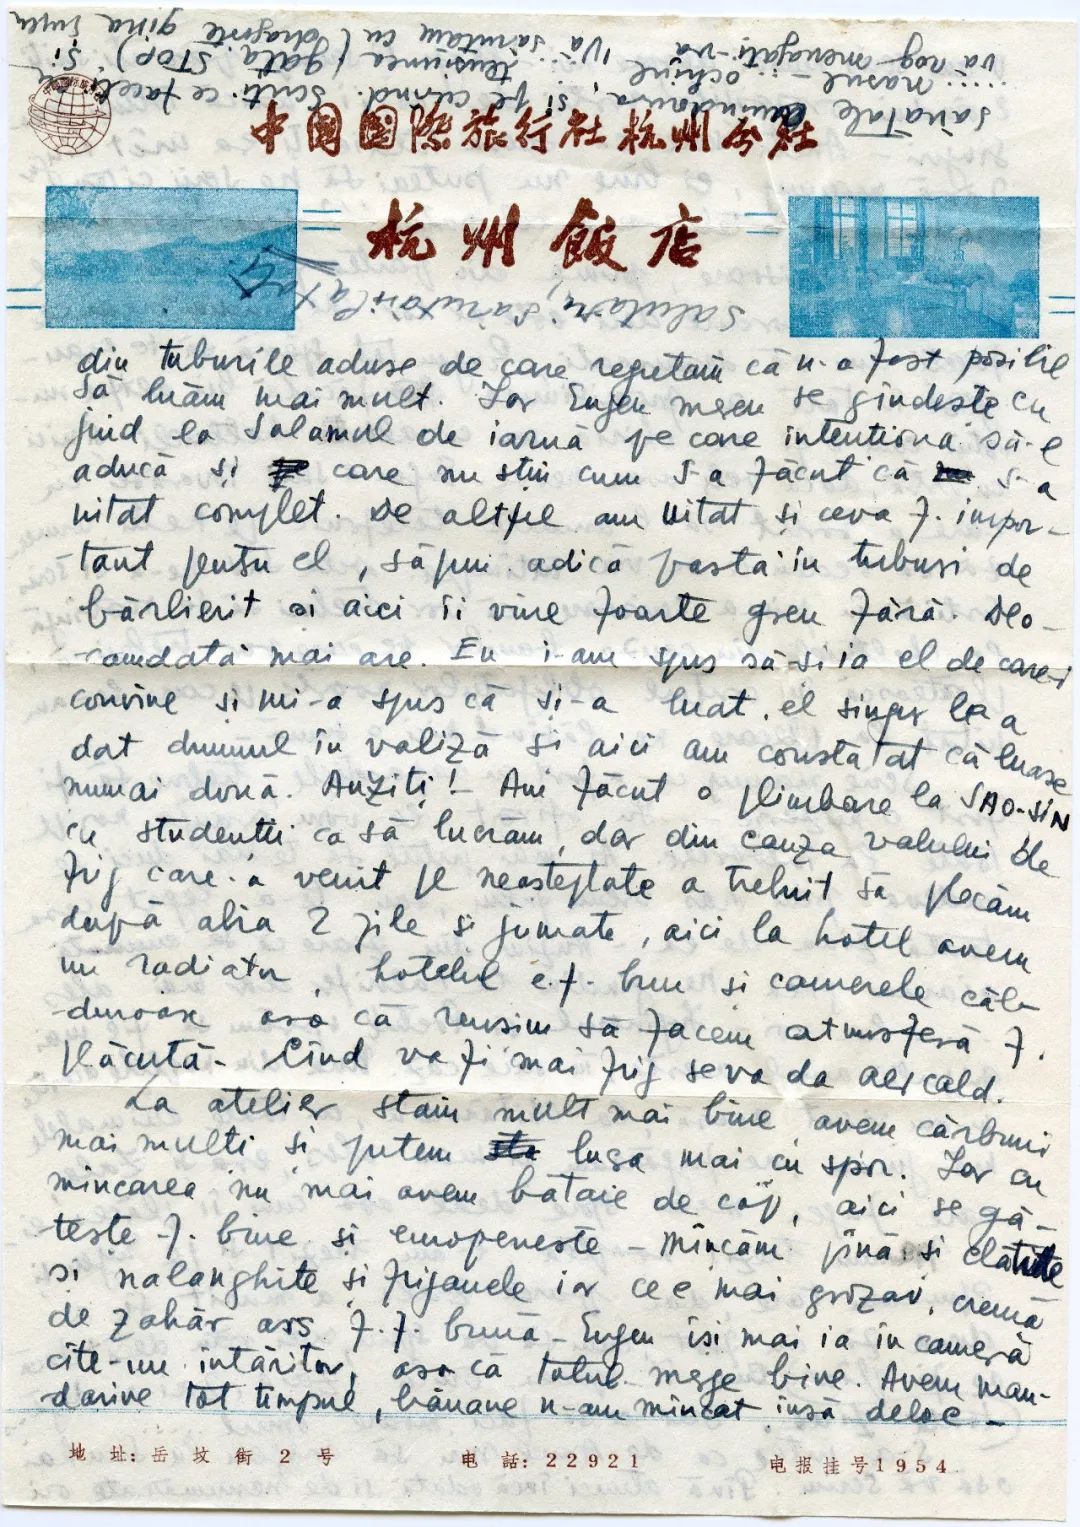 中國國際旅行社杭州分社
杭州飯店
din tuburile aduse de care regretăm că n-a fost posibil
să luăm mai mult. Iar Eugen mereu se gîndește cu
jind la salamul de iarnă pe care intentiona să-l
aducă și care nu știu cum s-a făcut că s-a
uitat complet. De altfel am uitat și ceva f. impor-
-tant pentru el, săpun adică pasta în tuburi de
bărbierit și aici îi vine foarte greu fără. Deo-
-camdată mai are. Eu i-am spus să-și ia el de care-i
convine și mi-a spus că și-a luat. el singur le a
dat drumul în valiză și aici am constatat că luase
numai două. Auziți! Am făcut o plimbare la SAO-SIN
cu studenții ca să lucrăm, dar din cauza valului de
frig care a venit pe neașteptate a trebuit să plecăm
după abia 2 zile și jumate, aici la hotel avem
un radiator, hotelul e f. bun și camerele căl-
-duroase așa că reușim să facem atmosferă f.
plăcută. Cînd va fi mai frig se va da aer cald.
La atelier stăm mult mai bine, avem cărbuni
mai mulți și putem lucra mai cu spor. Iar cu
mîncarea nu mai avem bătaie de cap, aici se gă-
tește f. bine și europenește - mîncăm pînă și clătite
și nalanghite și frigănele iar ce e mai grozav, cremă
de zahăr ars f. f. bună - Eugen își mai ia în cameră
cîte-un întăritor, așa că totul merge bine. Avem man-
darine tot timpul, banane n-am mîncat însă deloc -
地 址: 岳 坟 街 2 号
电 話: 22921
电报挂号1954
sănatate amîndoura, și pe curînd. Scriți ce faceți cu
nasul - ochiul tensiunea (gata STOP) și
vă rog menagați-vă Vă sărutăm cu dragoste gina Eugen
Salutări, sărutări la toți